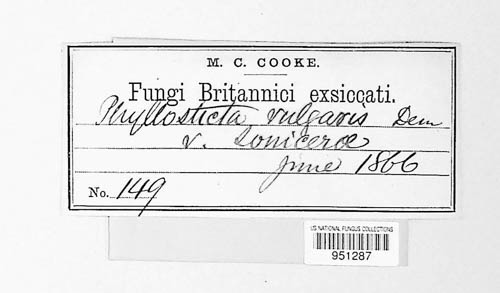 M. C. COOKE.
Fungi Britannici exsiccati.
Phyllosticta vulgaris Desm
v. Loniceræ
June 1866
No. 149
US NATIONAL FUNGUS COLLECTIONS
951287